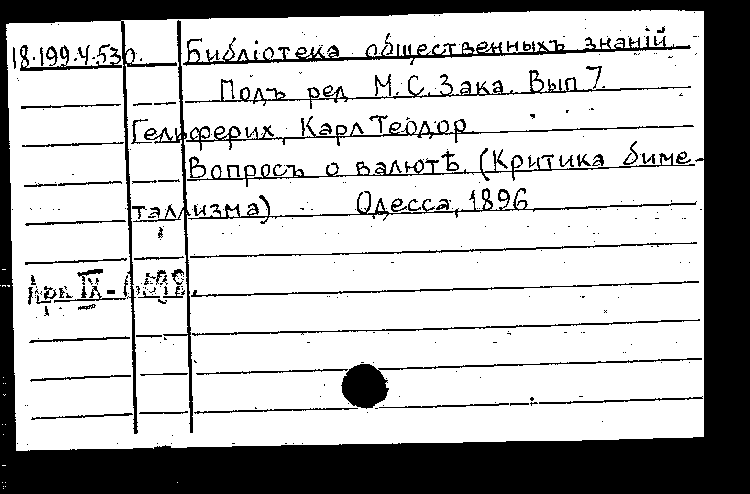 18.199.4.530. Библіотека общественныхъ знаній.
Подъ ред. М.С. Зака. Вып 7.
Гельферих, Карл Теодор
Вопросъ о валютѣ. (Критика биме-
таллизма) Одесса, 1896
Арк IX -